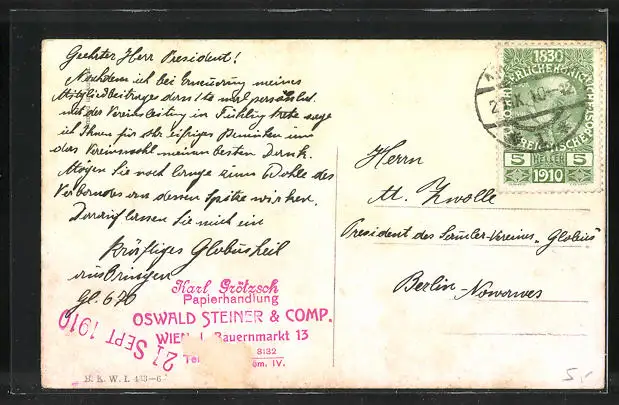 Geehrter Herr President!
Nachdem ich bei Erneuerung meines
Mitgliedbeitrages dem
mit der Vereinsleitung in Fühlung trete sage
ich Ihnen für Ihr eifriges Bemühen um
das Vereinswohl meinen besten Dank.
Mögen Sie noch lange zum Wohle des
Verbandes an dessen Spitze wirken.
Darauf lassen Sie mich ein
kräftiges Globusheil
ausbringen
Gl. 676
Karl Grötzsch
Papierhandlung
OSWALD STEINER & COMP.
WIEN I. Bauernmarkt 13
Tel 8132
öm. IV.
21 SEPT 1910
B. K. W. I. 433-6
1830
5 HELLER 5
1910
Herrn
M. Zwolle
President des Samler-Vereines „Globus"
Berlin-Nowawes
5,-